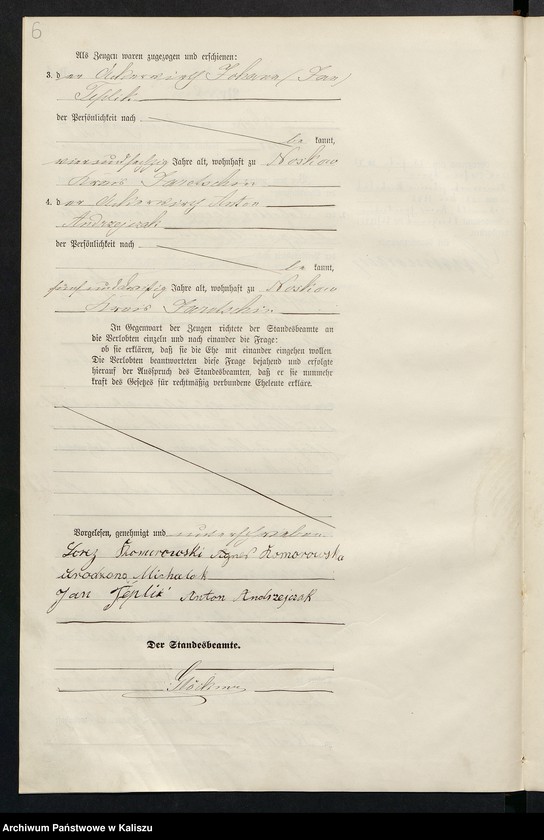 6
Als Zeugen waren zugezogen und erschienen:
3. der Ackerwirth Johann (Jan)
Teplik
der Persönlichkeit nach
be kannt,
vierundfechzig Jahre alt, wohnhaft zu Noskow
Kreis Jarotschin
4. der Ackerwirth Anton
Andrzejczak
der Persönlichkeit nach
be kannt,
fünfunddreißig Jahre alt, wohnhaft zu Noskow
Kreis Jarotschin
In Gegenwart der Zeugen richtete der Standesbeamte an
die Verlobten einzeln und nach einander die Frage:
ob sie erklären, daß sie die Ehe mit einander eingehen wollen.
Die Verlobten beantworteten diese Frage bejahend und erfolgte
hierauf der Ausspruch des Standesbeamten, daß er sie nunmehr
kraft des Gesetzes für rechtmäßig verbundene Eheleute erkläre.
Vorgelesen, genehmigt und unterschrieben
Komorowski Agnes Komorowska
Michalak
Jan Teplik Anton Andrzejczak
Der Standesbeamte.
Archiwum Państwowe w Kaliszu